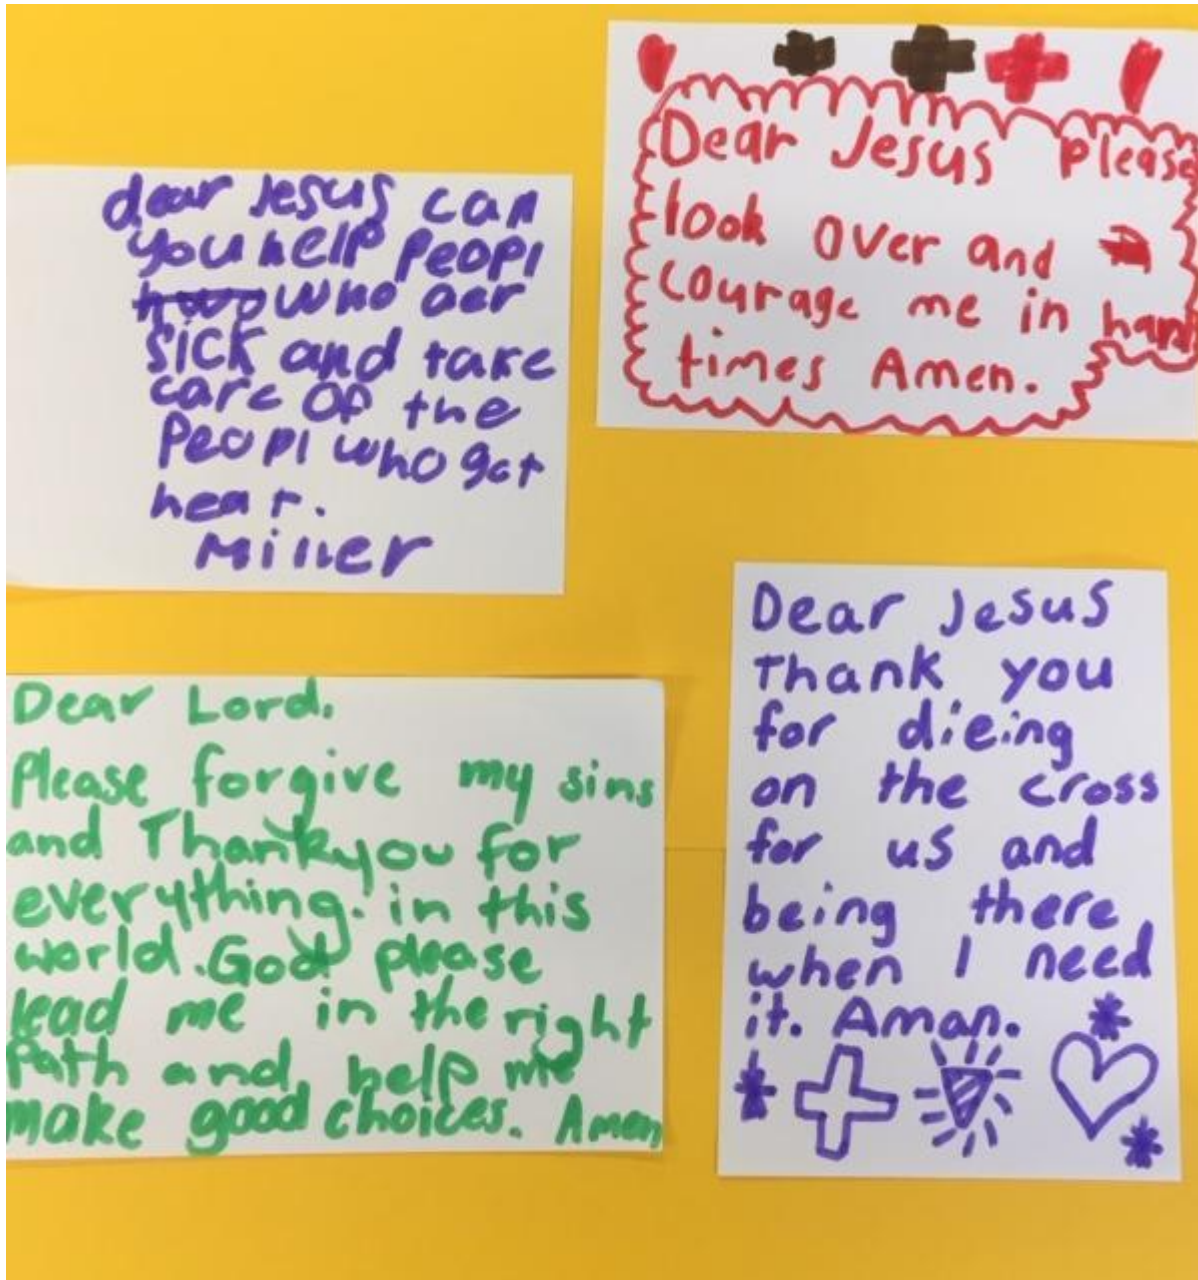 dear Jesus can
you help Peopl
who aer
sick and take
care of the
Peopl who get
hear.
Miller
Dear Jesus please
look over and
courage me in hard
times Amen.
Dear Lord.
Please forgive my sins
and Thankyou for
everything. in this
world. God please
lead me in the right
Path and help me
make good choices. Amen
Dear Jesus
Thank you
for dieing
on the cross
for us and
being there
when I need
it. Aman.